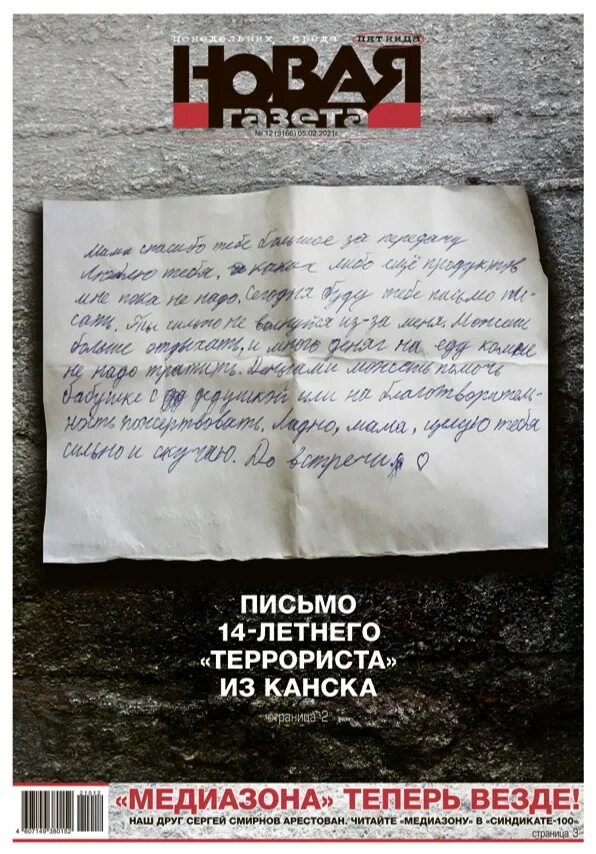 понедельник среда пятница
НОВАЯ
газета
№ 12 (3166) 05.02.2021г.
Мама спасибо тебе большое за передачу
Люблю тебя, каких либо ещё продуктов
мне пока не надо. Сегодня буду тебе письмо пи-
сать. Ты сильно не волнуйся из-за меня. Можешь
больше отдыхать, и много денег на еду ко мне
не надо тратить. Деньгами можешь помочь
бабушке с дедушкой или на благотворитель-
ность пожертвовать. Ладно, мама, целую тебя
сильно и скучаю. До встречи ♡
ПИСЬМО
14-ЛЕТНЕГО
«ТЕРРОРИСТА»
ИЗ КАНСКА
страница 2
21012
4 607149 380152
«МЕДИАЗОНА» ТЕПЕРЬ ВЕЗДЕ!
НАШ ДРУГ СЕРГЕЙ СМИРНОВ АРЕСТОВАН. ЧИТАЙТЕ «МЕДИАЗОНУ» В «СИНДИКАТЕ-100»
страница 3